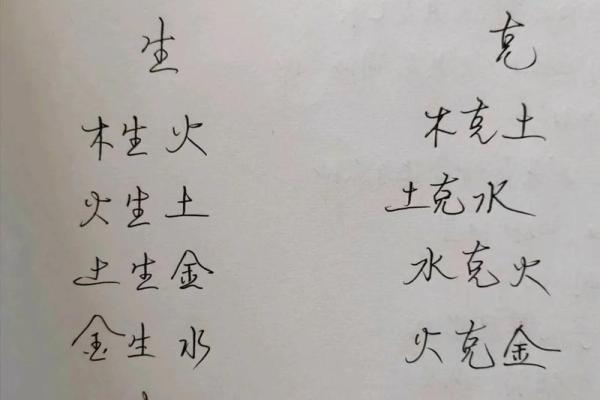 生 克
木生火 木克土
火生土 土克水
土生金 水克火
金生水 火克金